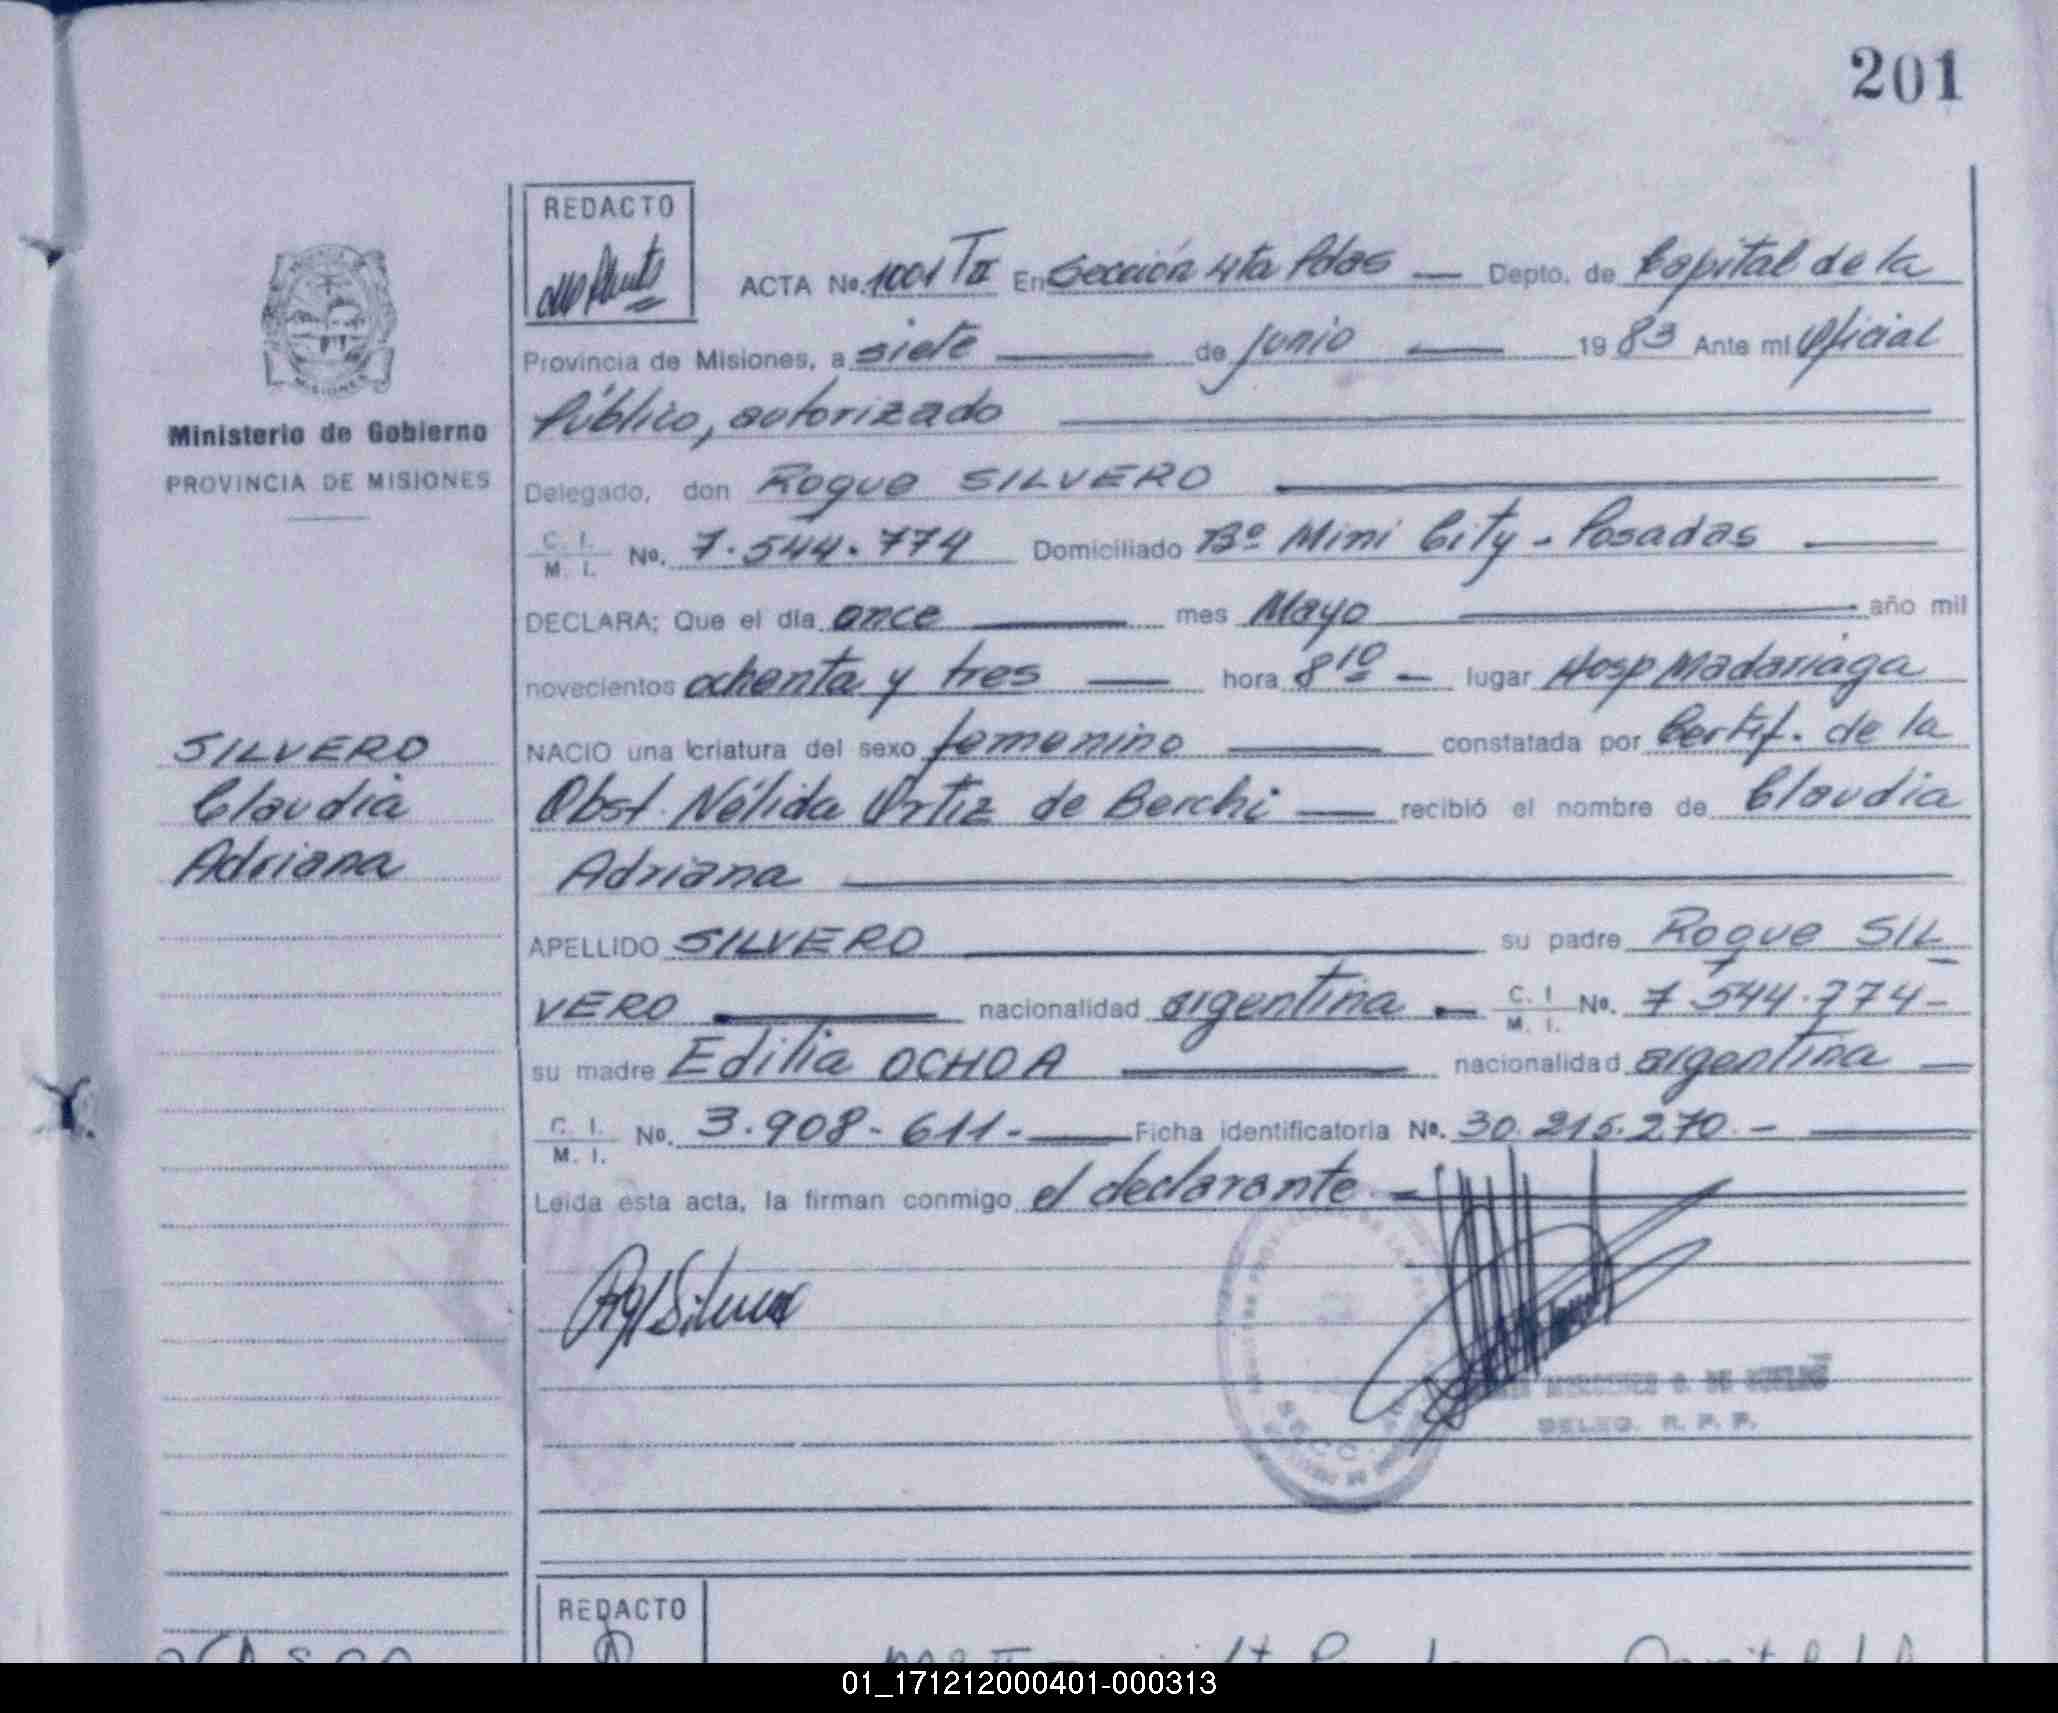 201
REDACTO
ACTA No. 1001 TII En Sección 4ta Pdas — Depto. de Capital de la
Provincia de Misiones, a siete — de junio — 1983 Ante mi Oficial
Público, autorizado
Ministerio de Gobierno
PROVINCIA DE MISIONES
Delegado, don Roque SILVERO
C. I.
M. I. No. 7.544.774 Domiciliado Bº Mini City - Posadas —
DECLARA: Que el día once — mes Mayo — año mil
novecientos ochenta y tres — hora 8 10 — lugar Hosp Madariaga
NACIO una criatura del sexo femenino — constatada por Certif. de la
Obst. Nélida Ortiz de Berchi — recibió el nombre de Claudia
Adriana
SILVERO
Claudia
Adriana
APELLIDO SILVERO — su padre Roque SIL
VERO — nacionalidad argentina — C. I.
M. I. No. 7.544.774-
su madre Edilia OCHOA — nacionalidad argentina —
C. I.
M. I. No. 3.908-611- — Ficha identificatoria No. 30.215.270.-
Leida esta acta, la firman conmigo el declarante.-
SECC.
DELEG. R. P. P.
REDACTO
01_171212000401-000313